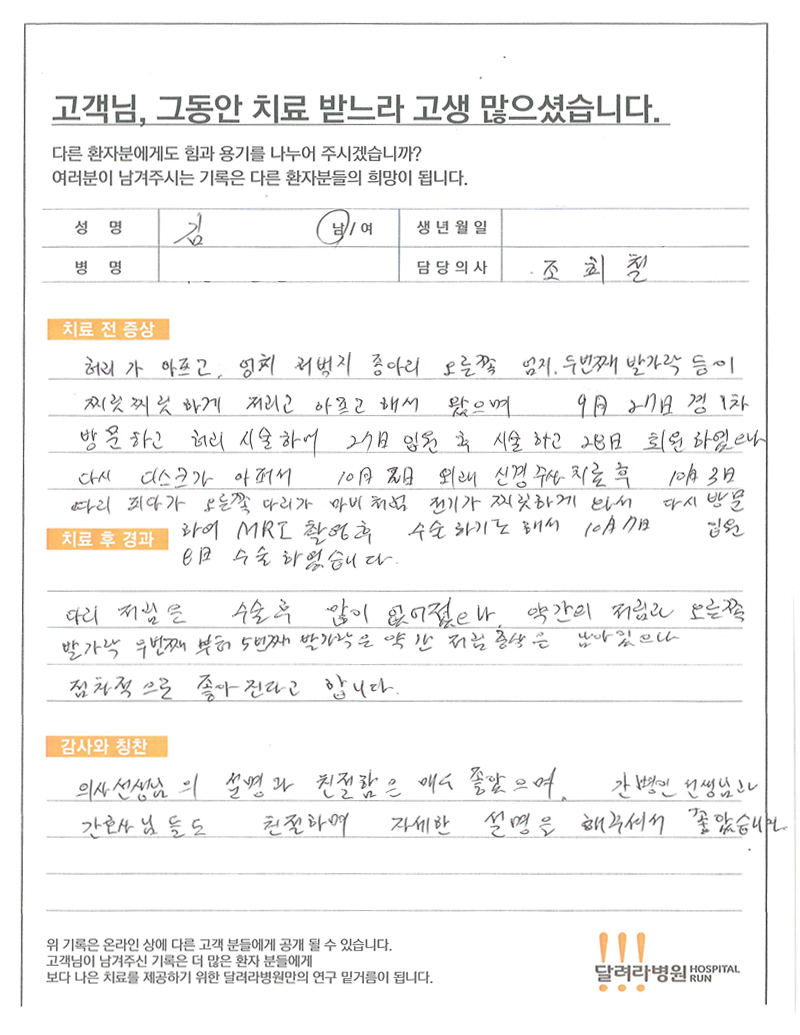 고객님, 그동안 치료 받느라 고생 많으셨습니다.
다른 환자분에게도 힘과 용기를 나누어 주시겠습니까?
여러분이 남겨주시는 기록은 다른 환자분들의 희망이 됩니다.
성 명 김 남 / 여 생년월일
병 명 담당의사 조희철
치료 전 증상
허리가 아프고, 엉치 허벅지 종아리 오른쪽 엄지, 두번째 발가락 등이
찌릿찌릿 하게 저리고 아프고 해서 왔으며 9月 27日 경 1차
방문하고 허리 시술하여 27日 입원 후 시술하고 28日 퇴원하였으나
다시 디스크가 아퍼서 10月 외래 신경주사치료 후 10月 3日
오른쪽 다리가 마비처럼 전기가 찌릿하게 와서 다시 방문
하여 MRI 촬영후 수술하기로 해서 10月 7日 입원
8日 수술하였습니다.
치료 후 경과
다리 저림은 수술후 많이 없어졌으나, 약간의 저림과 오른쪽
발가락 두번째 부터 5번째 발가락은 약간 저림증상은 남아있으나
점차적으로 좋아진다고 합니다.
감사와 칭찬
의사선생님의 설명과 친절함은 매우 좋았으며, 간병인 선생님과
간호사님들도 친절하며 자세한 설명을 해주셔서 좋았습니다.
위 기록은 온라인 상에 다른 고객 분들에게 공개 될 수 있습니다.
고객님이 남겨주신 기록은 더 많은 환자 분들에게
보다 나은 치료를 제공하기 위한 달려라병원만의 연구 밑거름이 됩니다.
달려라병원 HOSPITAL RUN